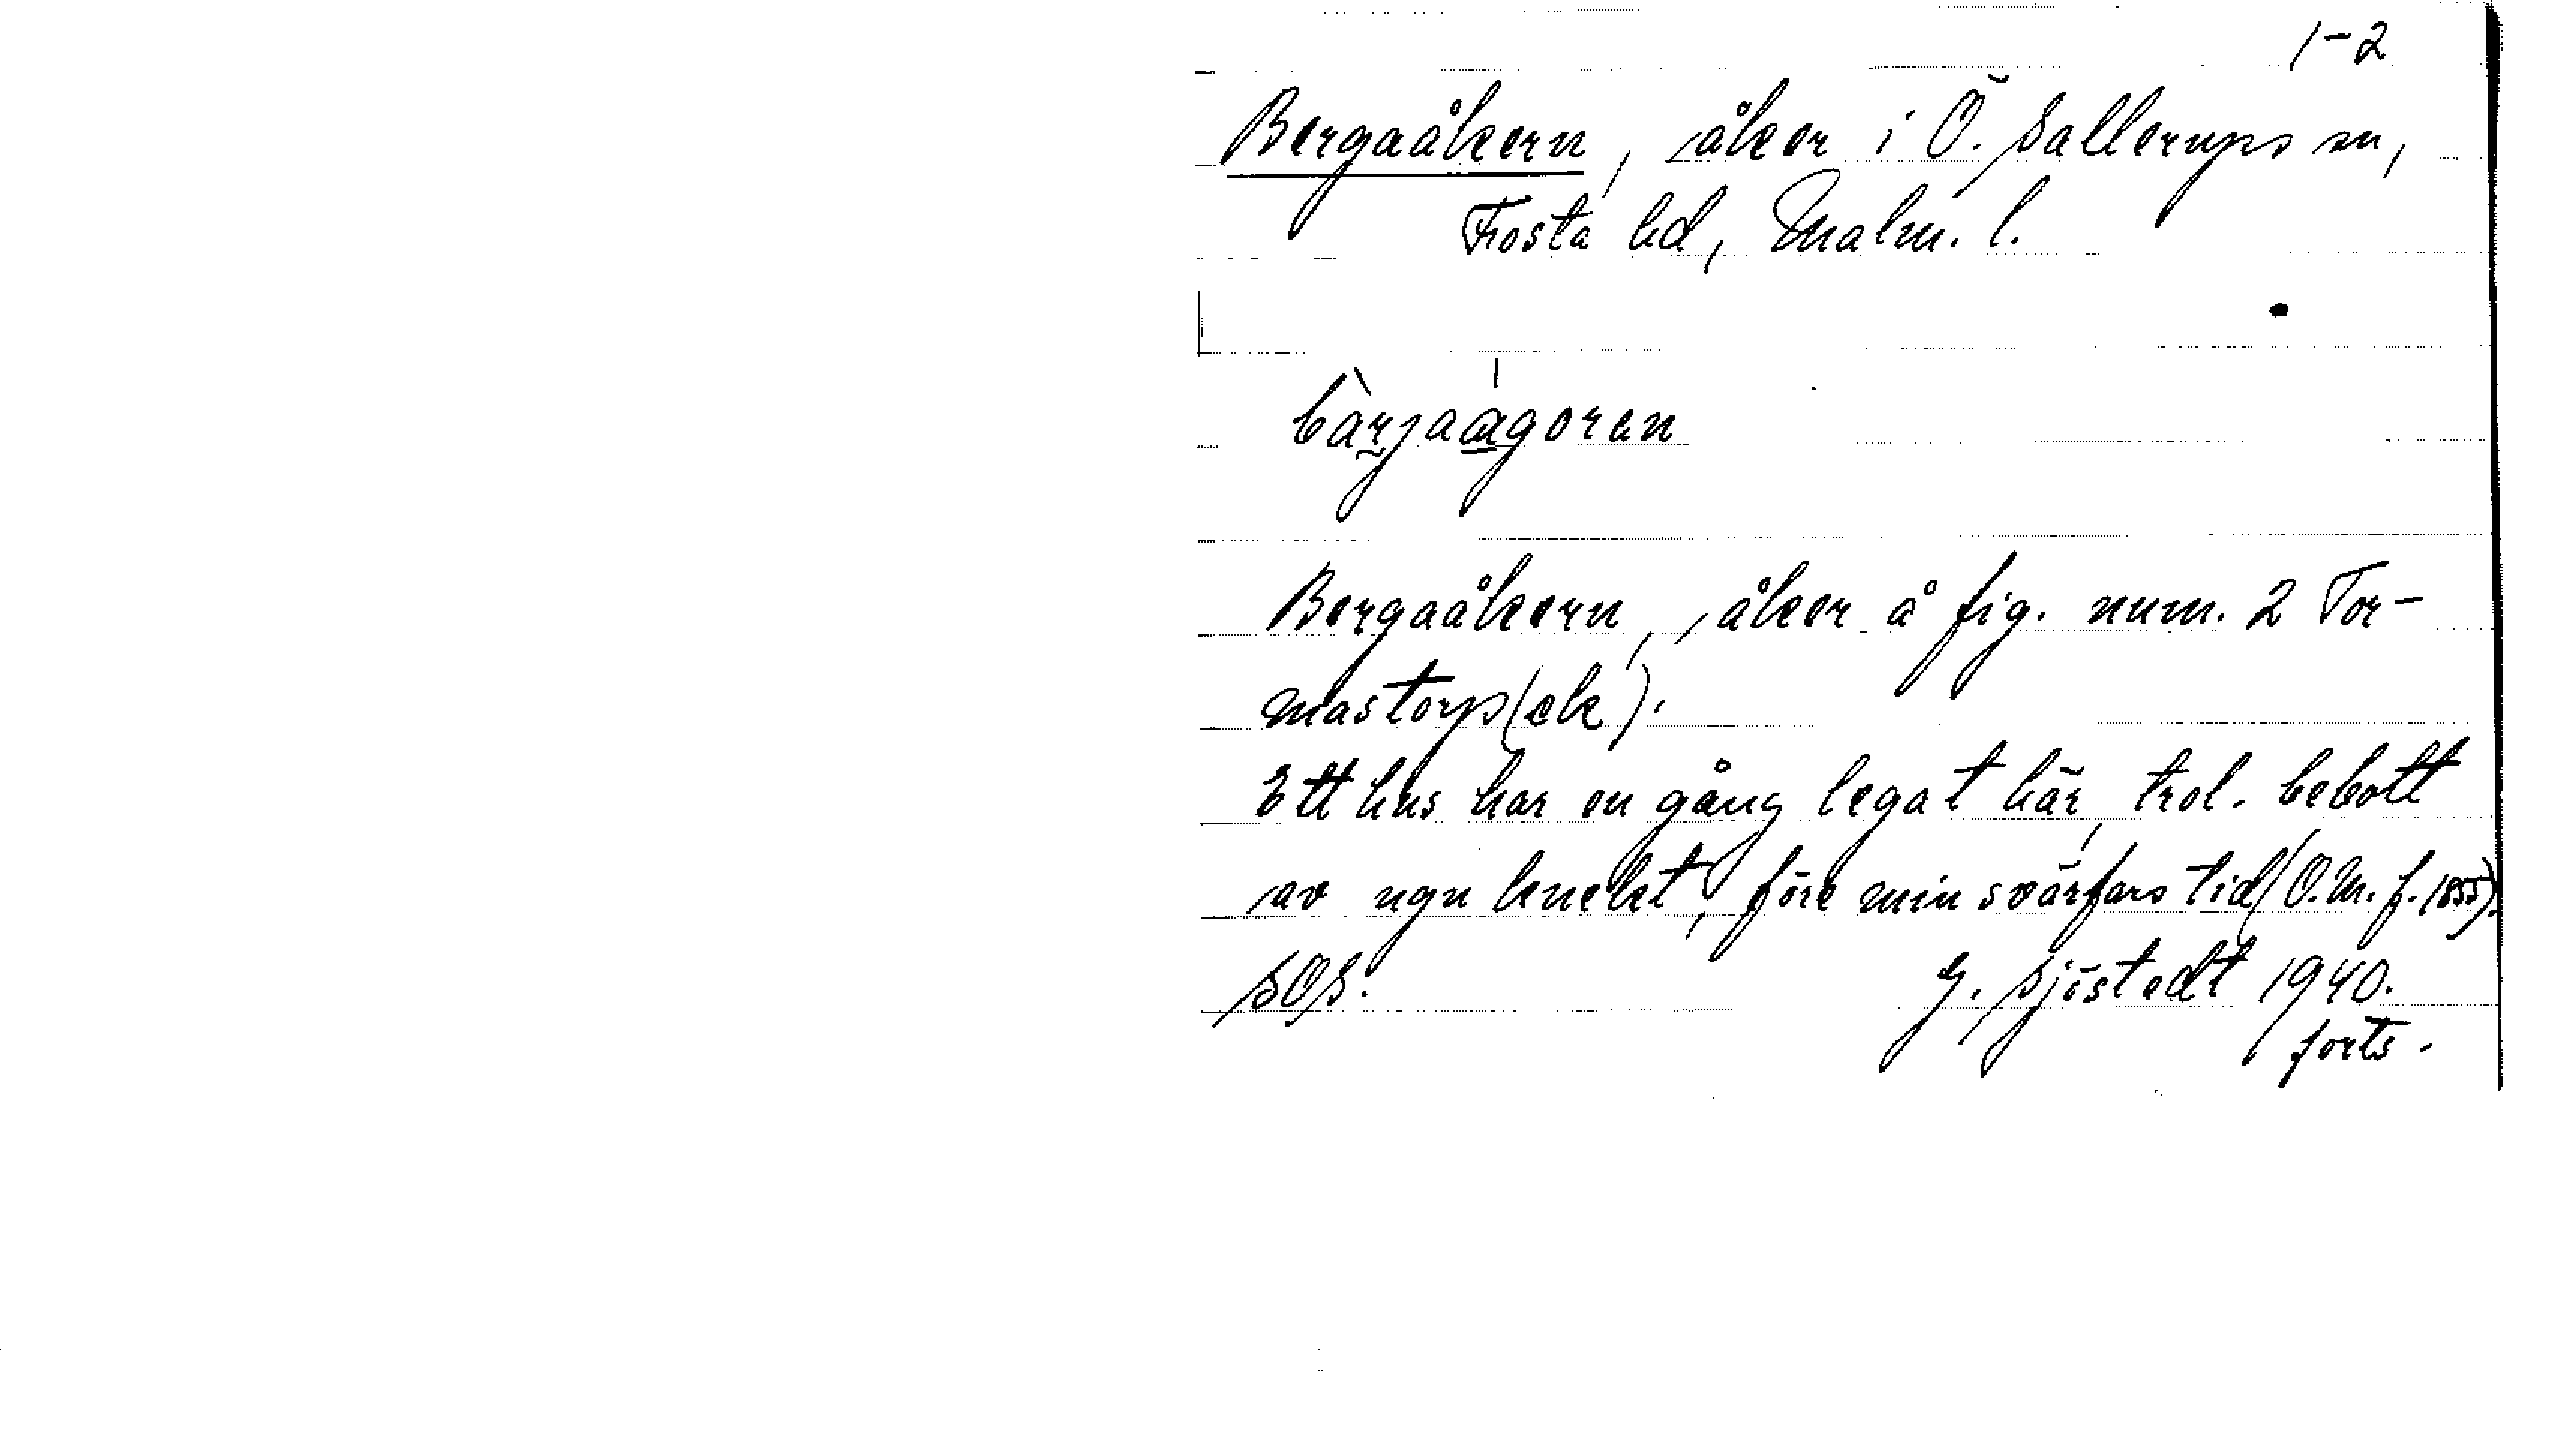 1-2
Bergaåkern, åker i Ö. Sallerups sn,
Frosta hd, Malm. l.
bàrjaágoren
Bergaåkern, åker å fig. num. 2 Tor-
mastorp (ek).
Ett hus har en gång legat här, trol. bebott
av ngn knekt, före min svärfars tid (O.M. f. 1855).
SOS. G. Sjöstedt 1940.
forts.